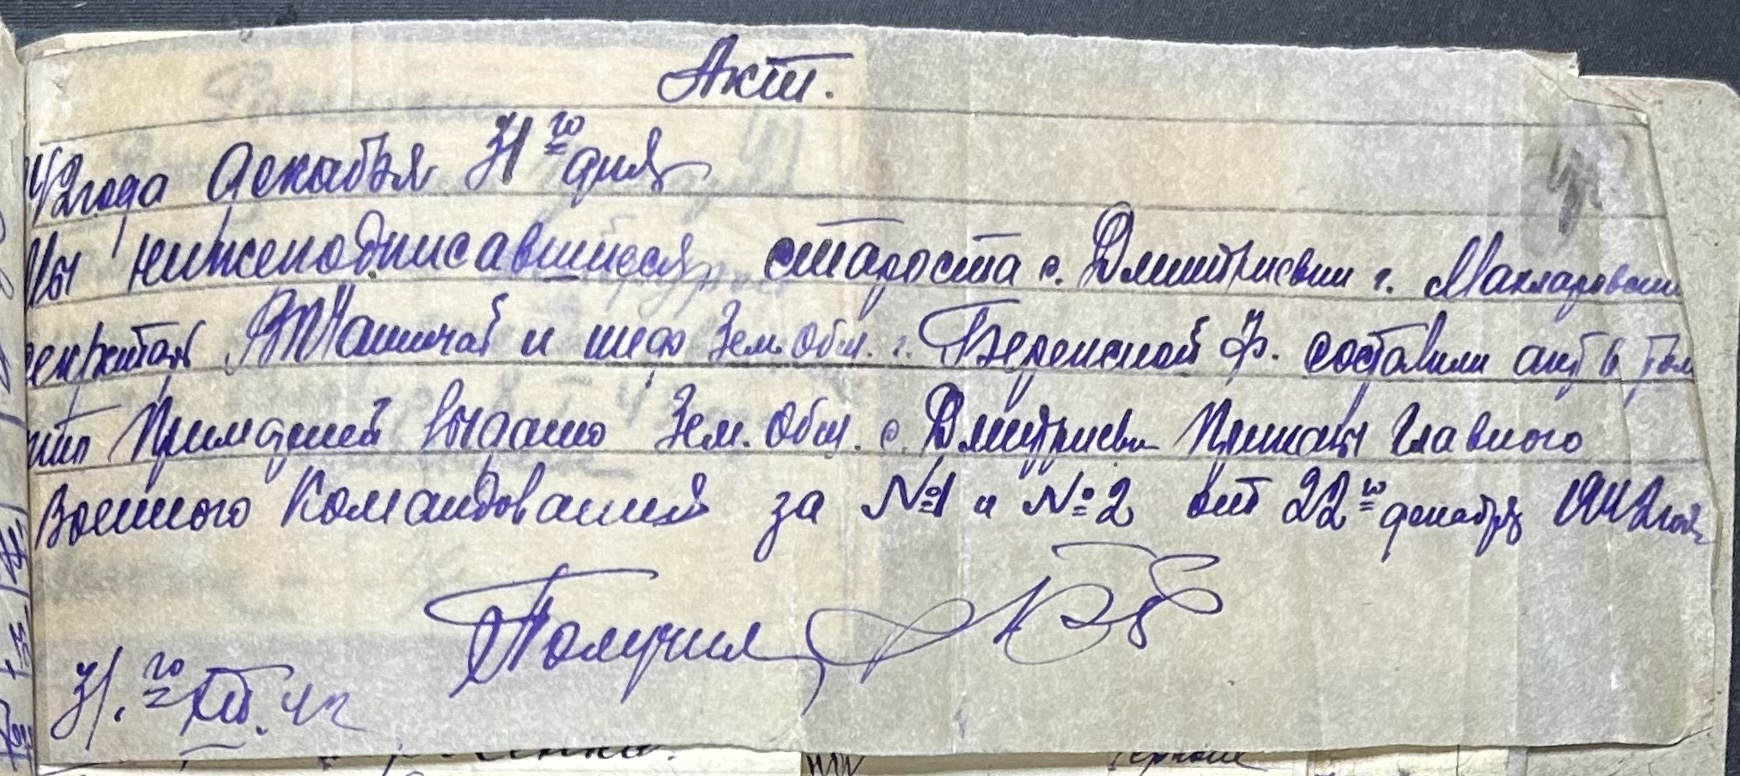 Акт.
42 года декабря 31го дня
Мы нижеподписавшиеся староста с. Дмитриевки г.
секретарь и Зем. Общ. г. Ф. составили акт в том
что выдано Зем. Общ. с. Дмитриевки Приказы Главного
Военного Командования за №1 и №2 от 22го декабря 1942 года
Получил
31.го XII.42